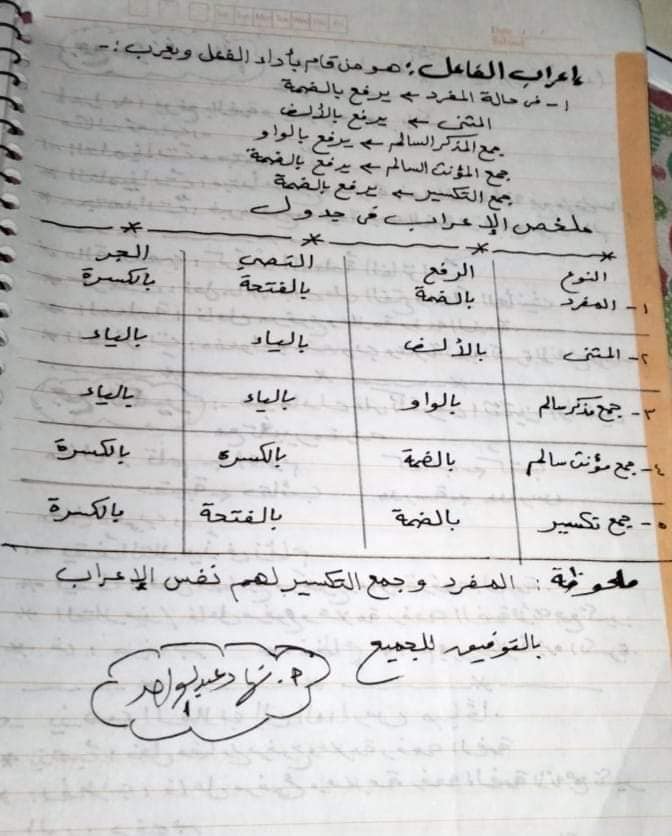 إعراب الفاعل: هو من قام بأداء الفعل ويعرب:-
١- فى حالة المفرد ← يرفع بالضمة
المثنى ← يرفع بالألف
جمع المذكر السالم ← يرفع بالواو
جمع المؤنث السالم ← يرفع بالضمة
جمع التكسير ← يرفع بالضمة
ملخص الإعراب فى جدول
النوع الرفع النصب الجر
١- المفرد بالضمة بالفتحة بالكسرة
٢- المثنى بالألف بالياء بالياء
٣- جمع مذكر سالم بالواو بالياء بالياء
٤- جمع مؤنث سالم بالضمة بالكسره بالكسرة
٥- جمع تكسير بالضمة بالفتحة بالكسرة
ملحوظة: المفرد و جمع التكسير لهم نفس الإعراب
بالتوفيق للجميع